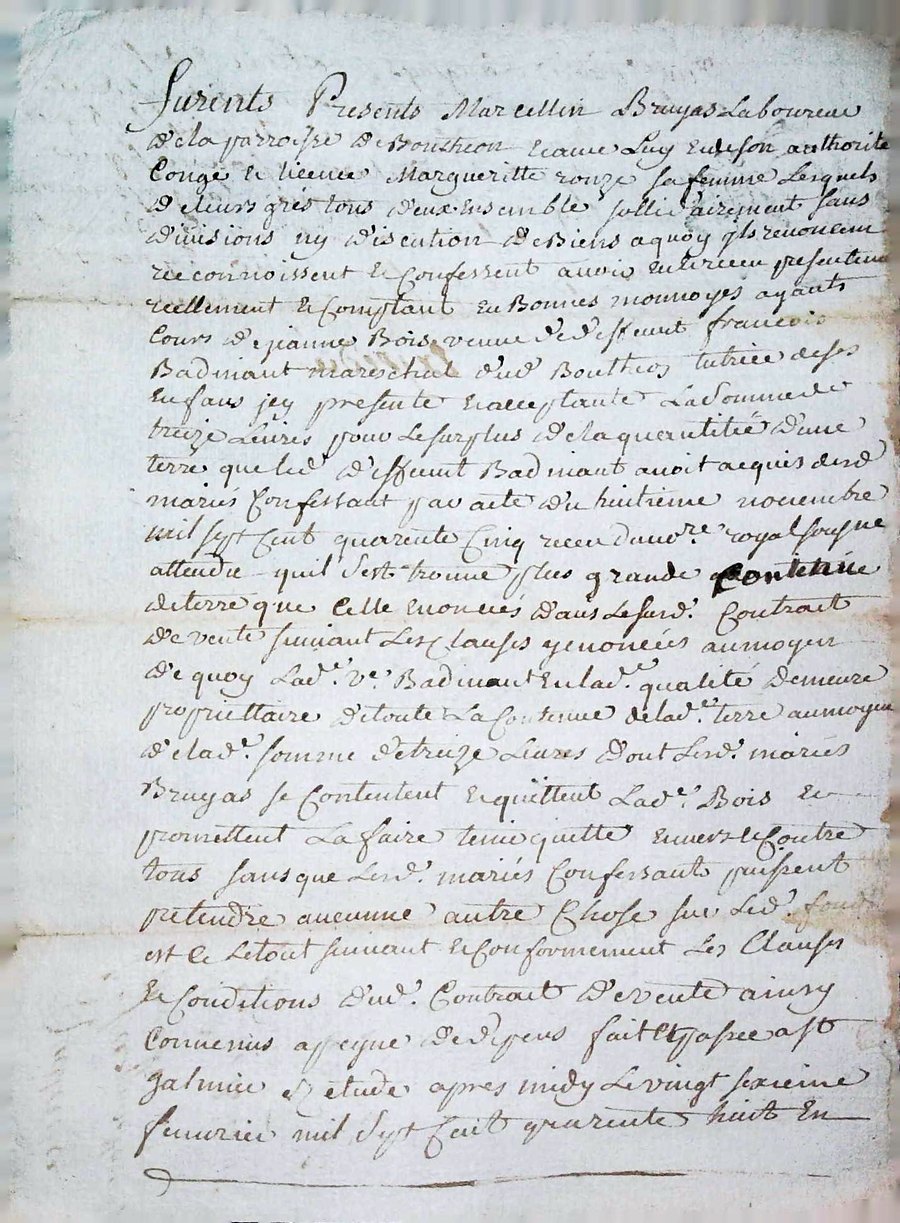 furents Presents Marcellin Bruyas Laboureur
de la parroisse de Bouthéon Et avec Luy Et de son authorité
Congé et licence Margueritte ronze sa femme Lesquels
de leurs grés tous deux Ensemble sollidairement sans
divisions ny discution de Biens a quoy ils renoncent
reconnoissent et Confessent avoir Eu et receu presentemt
reellement et Comptant En Bonnes monnoyes ayants
Cours de jeanne Bois veuve de deffunt francois
Badinant mareschal dud. Boutheos tutrice de ses
Enfans jcy presente Et acceptante La Somme de
treize Livres pour Le surplus de la quantitié d'une
terre que led. deffunt Badinant avoit acquis desd.
mariés Confessant par acte du huitième novembre
mil sept Cent quarente Cinq receu du no.re royal sousne
attendu quil s'est trouvé plus grande Contenüe
de terre que Celle Enoncées dans Le susd. Contrait
de vente suivant Les Clauses y enoncées aumoyen
de quoy Lad.e v.e Badinant En lad.e qualité Demeure
propriettaire de toute La Contenue de lad.e terre aumoyen
de lad.e somme de treize Livres dont Lesd. mariés
Bruyas se Contentent et quittent Lad.e Bois Et
promettent La faire tenir quitte Envers et Contre
tous sans que Lesd. mariés Confessant puissent
pretendre aucunne autre Chose sur Led. fond
est Ce Le tout suivant et Conformement Les Clauses
et Conditions dud. Contrait de vente ainsy
Convenus a peyne de depens fait Et passée a St
galmier Et etude apres midy Le vingt sixieme
fevrier mil sept Cent quarente huit En